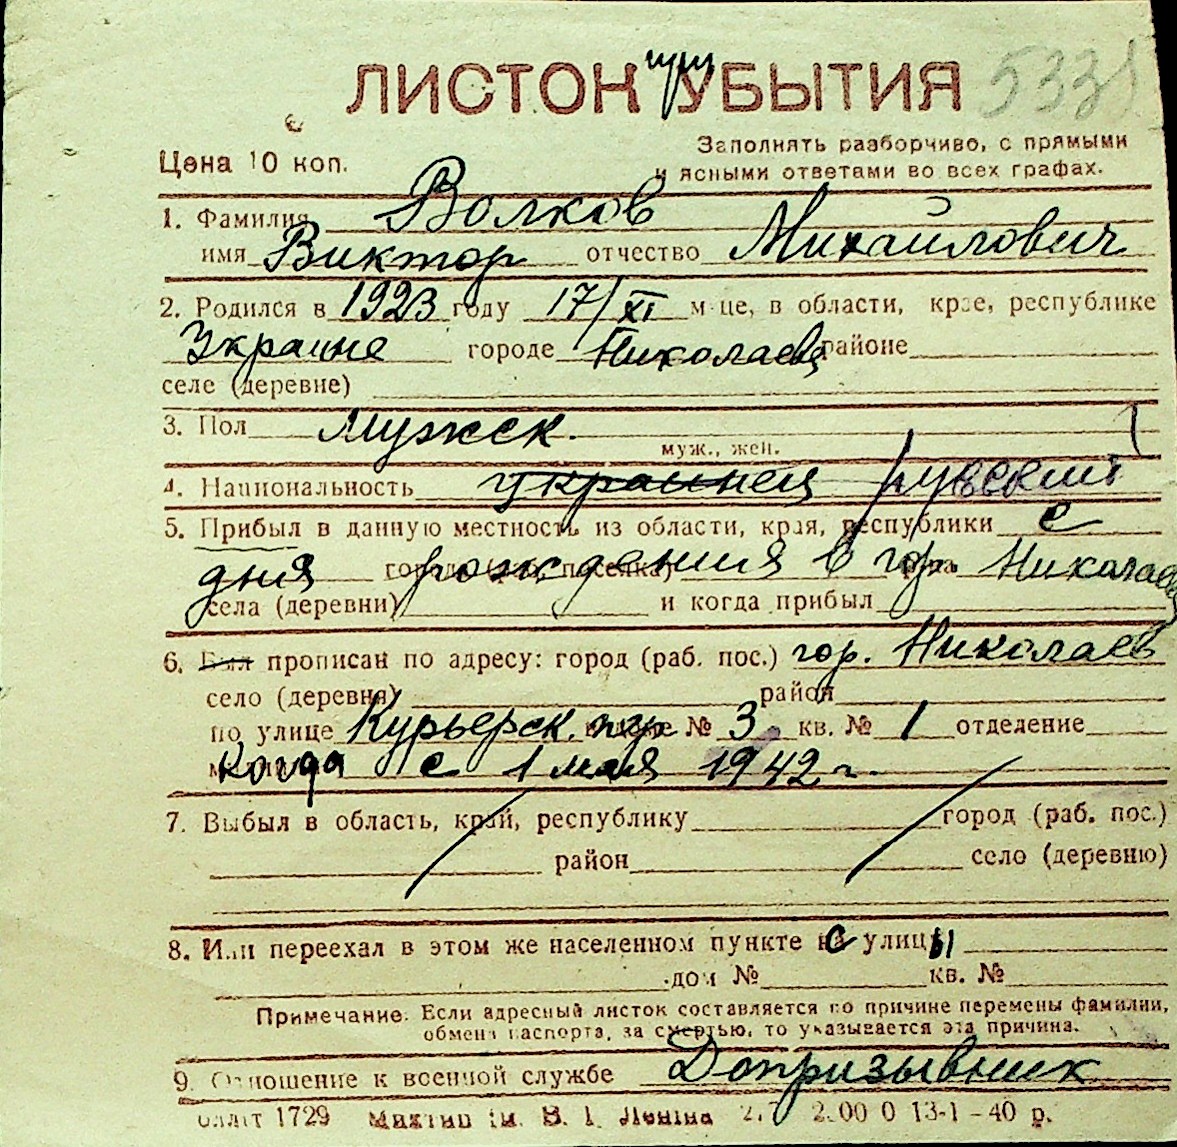 ЛИСТОК при УБЫТИЯ 5331
Цена 10 коп. Заполнять разборчиво, с прямыми
и ясными ответами во всех графах.
1. Фамилия Волков
имя Виктор отчество Михайлович
2. Родился в 1923 году 17/XI м-це, в области, крае, республике
Украине городе Николаев районе
селе (деревне)
3. Пол мужск.
муж., жен.
4. Национальность украинец русский
5. Прибыл в данную местность из области, края, республики с
дня города (раб. поселка) рождения в гор. Николаев
села (деревни) и когда прибыл
6. Был прописан по адресу: город (раб. пос.) гор. Николаев
село (деревня) район
по улице Курьерск. пер. № 3 кв. № 1 отделение
когда с 1 мая 1942 г.
7. Выбыл в область, край, республику город (раб. пос.)
район село (деревню)
8. Или переехал в этом же населенном пункте с улицы
дом № кв. №
Примечание: Если адресный листок составляется по причине перемены фамилии,
обмена паспорта, за смертью, то указывается эта причина.
9. Отношение к военной службе Допризывник
1729 им. В. И. Ленина 13-1-40 р.